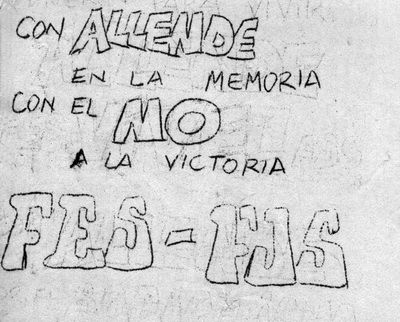 CON ALLENDE
EN LA MEMORIA
CON EL NO
A LA VICTORIA
FES - FJS